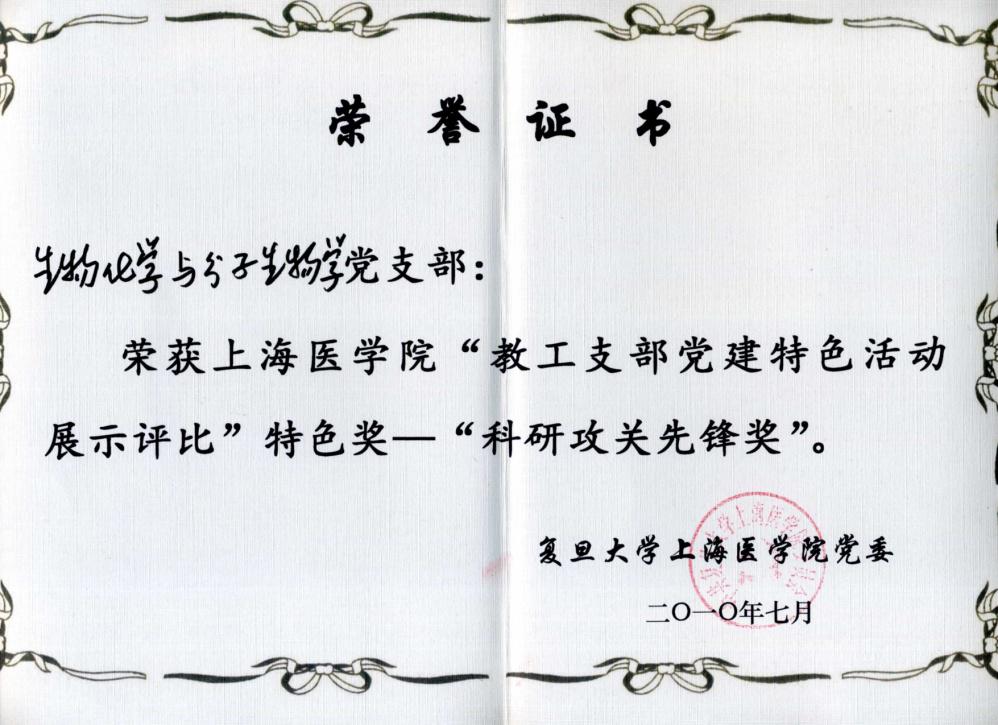 荣誉证书
生物化学与分子生物学党支部：
荣获上海医学院“教工支部党建特色活动
展示评比”特色奖—“科研攻关先锋奖”。
复旦大学上海医学院党委
二〇一〇年七月